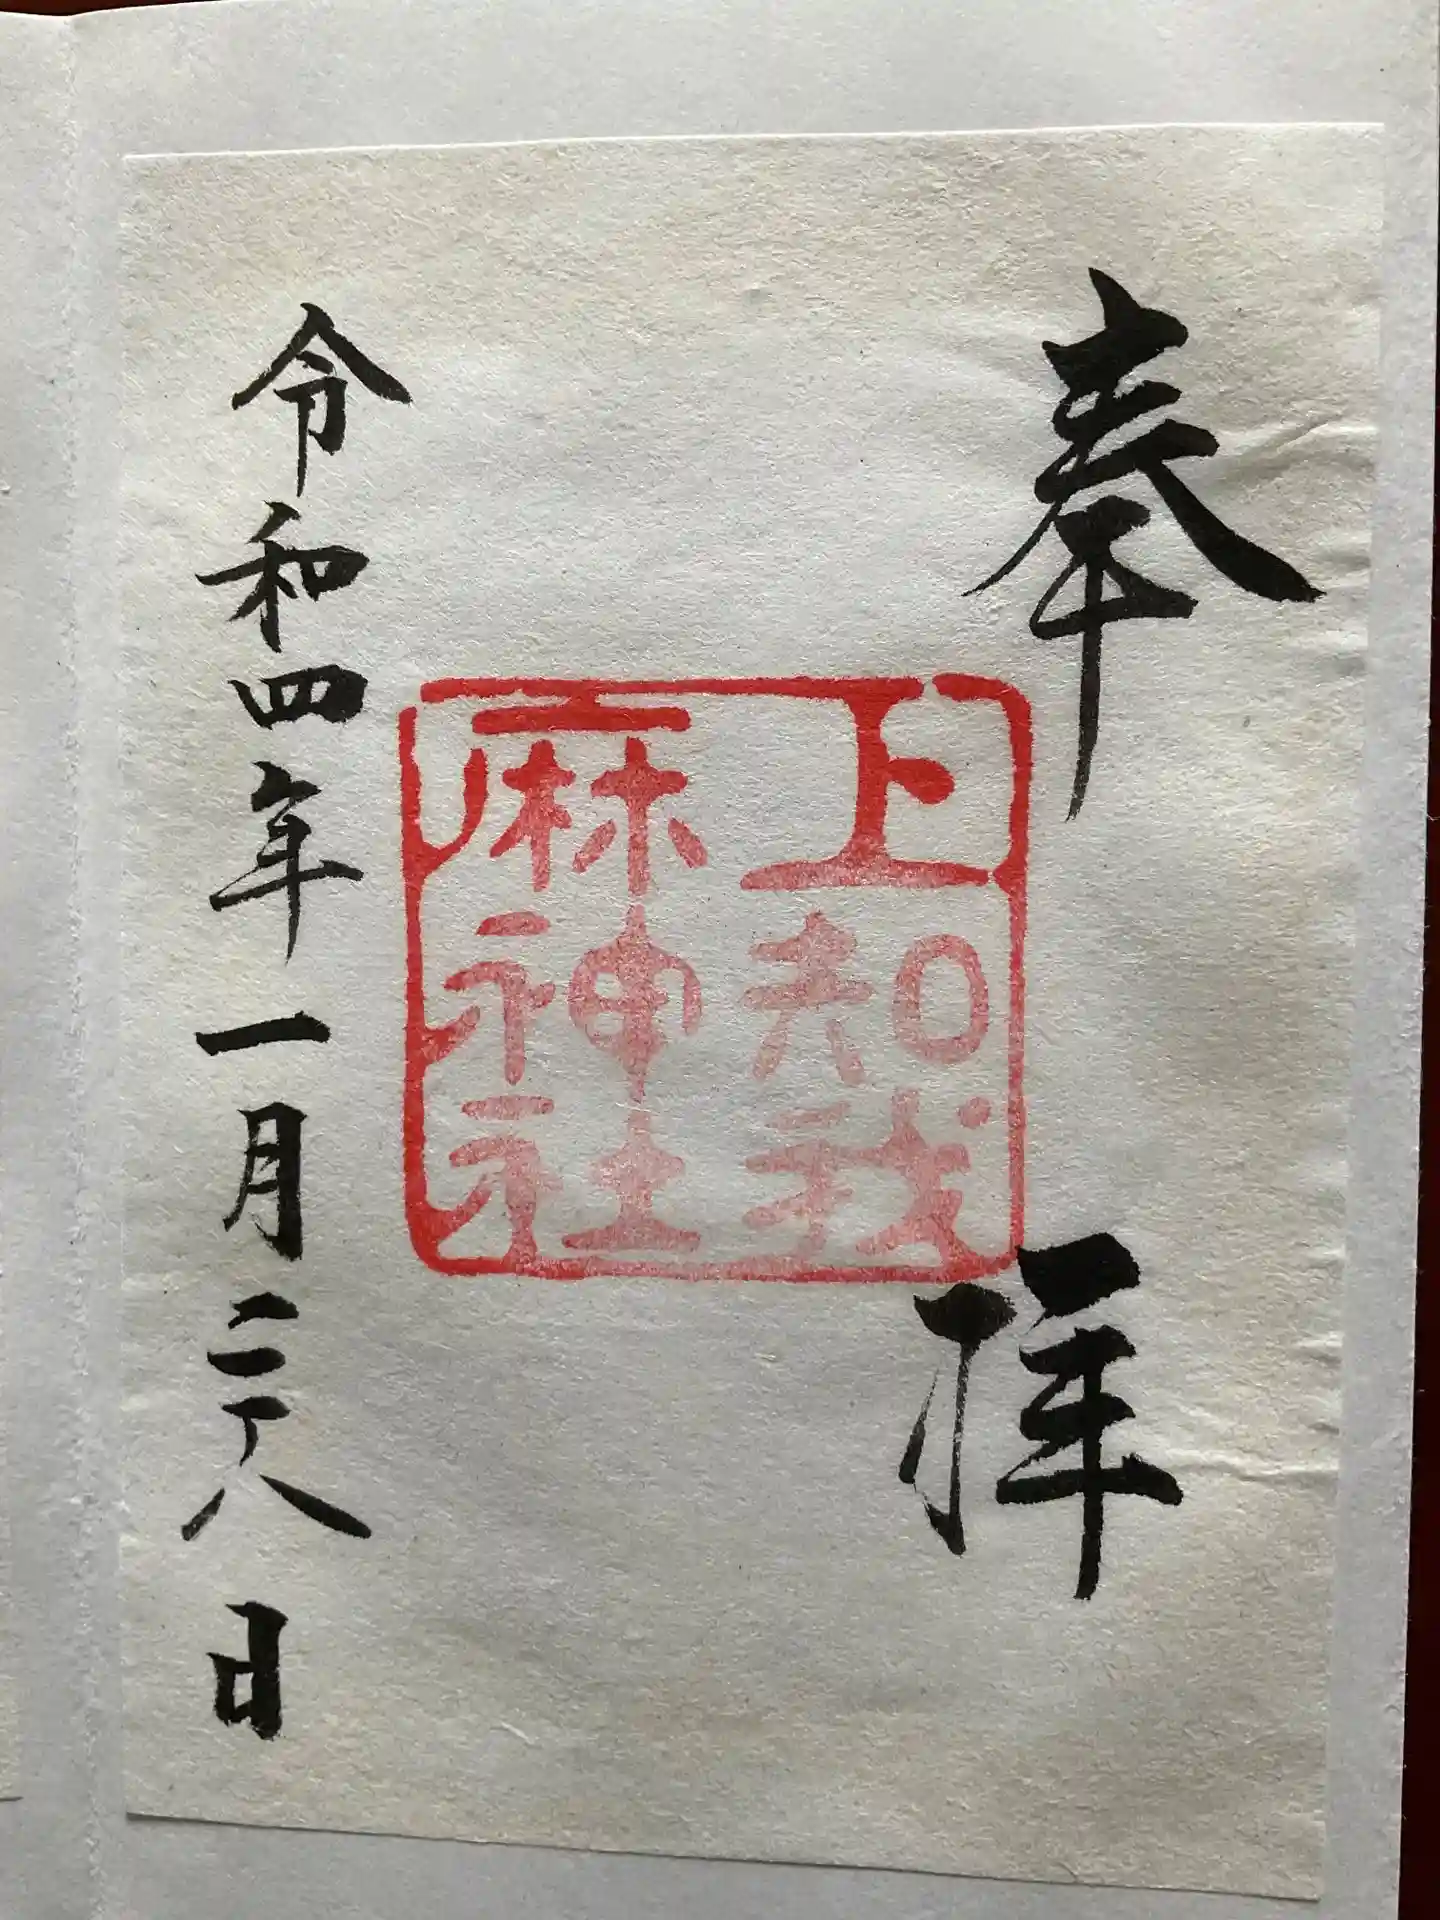 奉拝
上知我
麻神社
令和四年一月二十八日